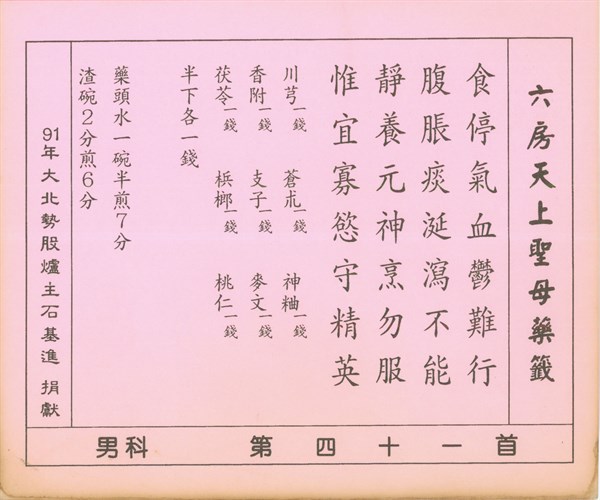 六房天上聖母藥籤
食停氣血鬱難行
腹脹痰涎瀉不能
靜養元神烹勿服
惟宜寡慾守精英
川芎一錢 蒼朮一錢 神粬一錢
香附一錢 支子一錢 麥文一錢
茯苓一錢 梹榔一錢 桃仁一錢
半下各一錢
藥頭水一碗半煎7分
渣碗2分煎6分
91年大北勢股爐主石基進 捐獻
男科 第四十一首